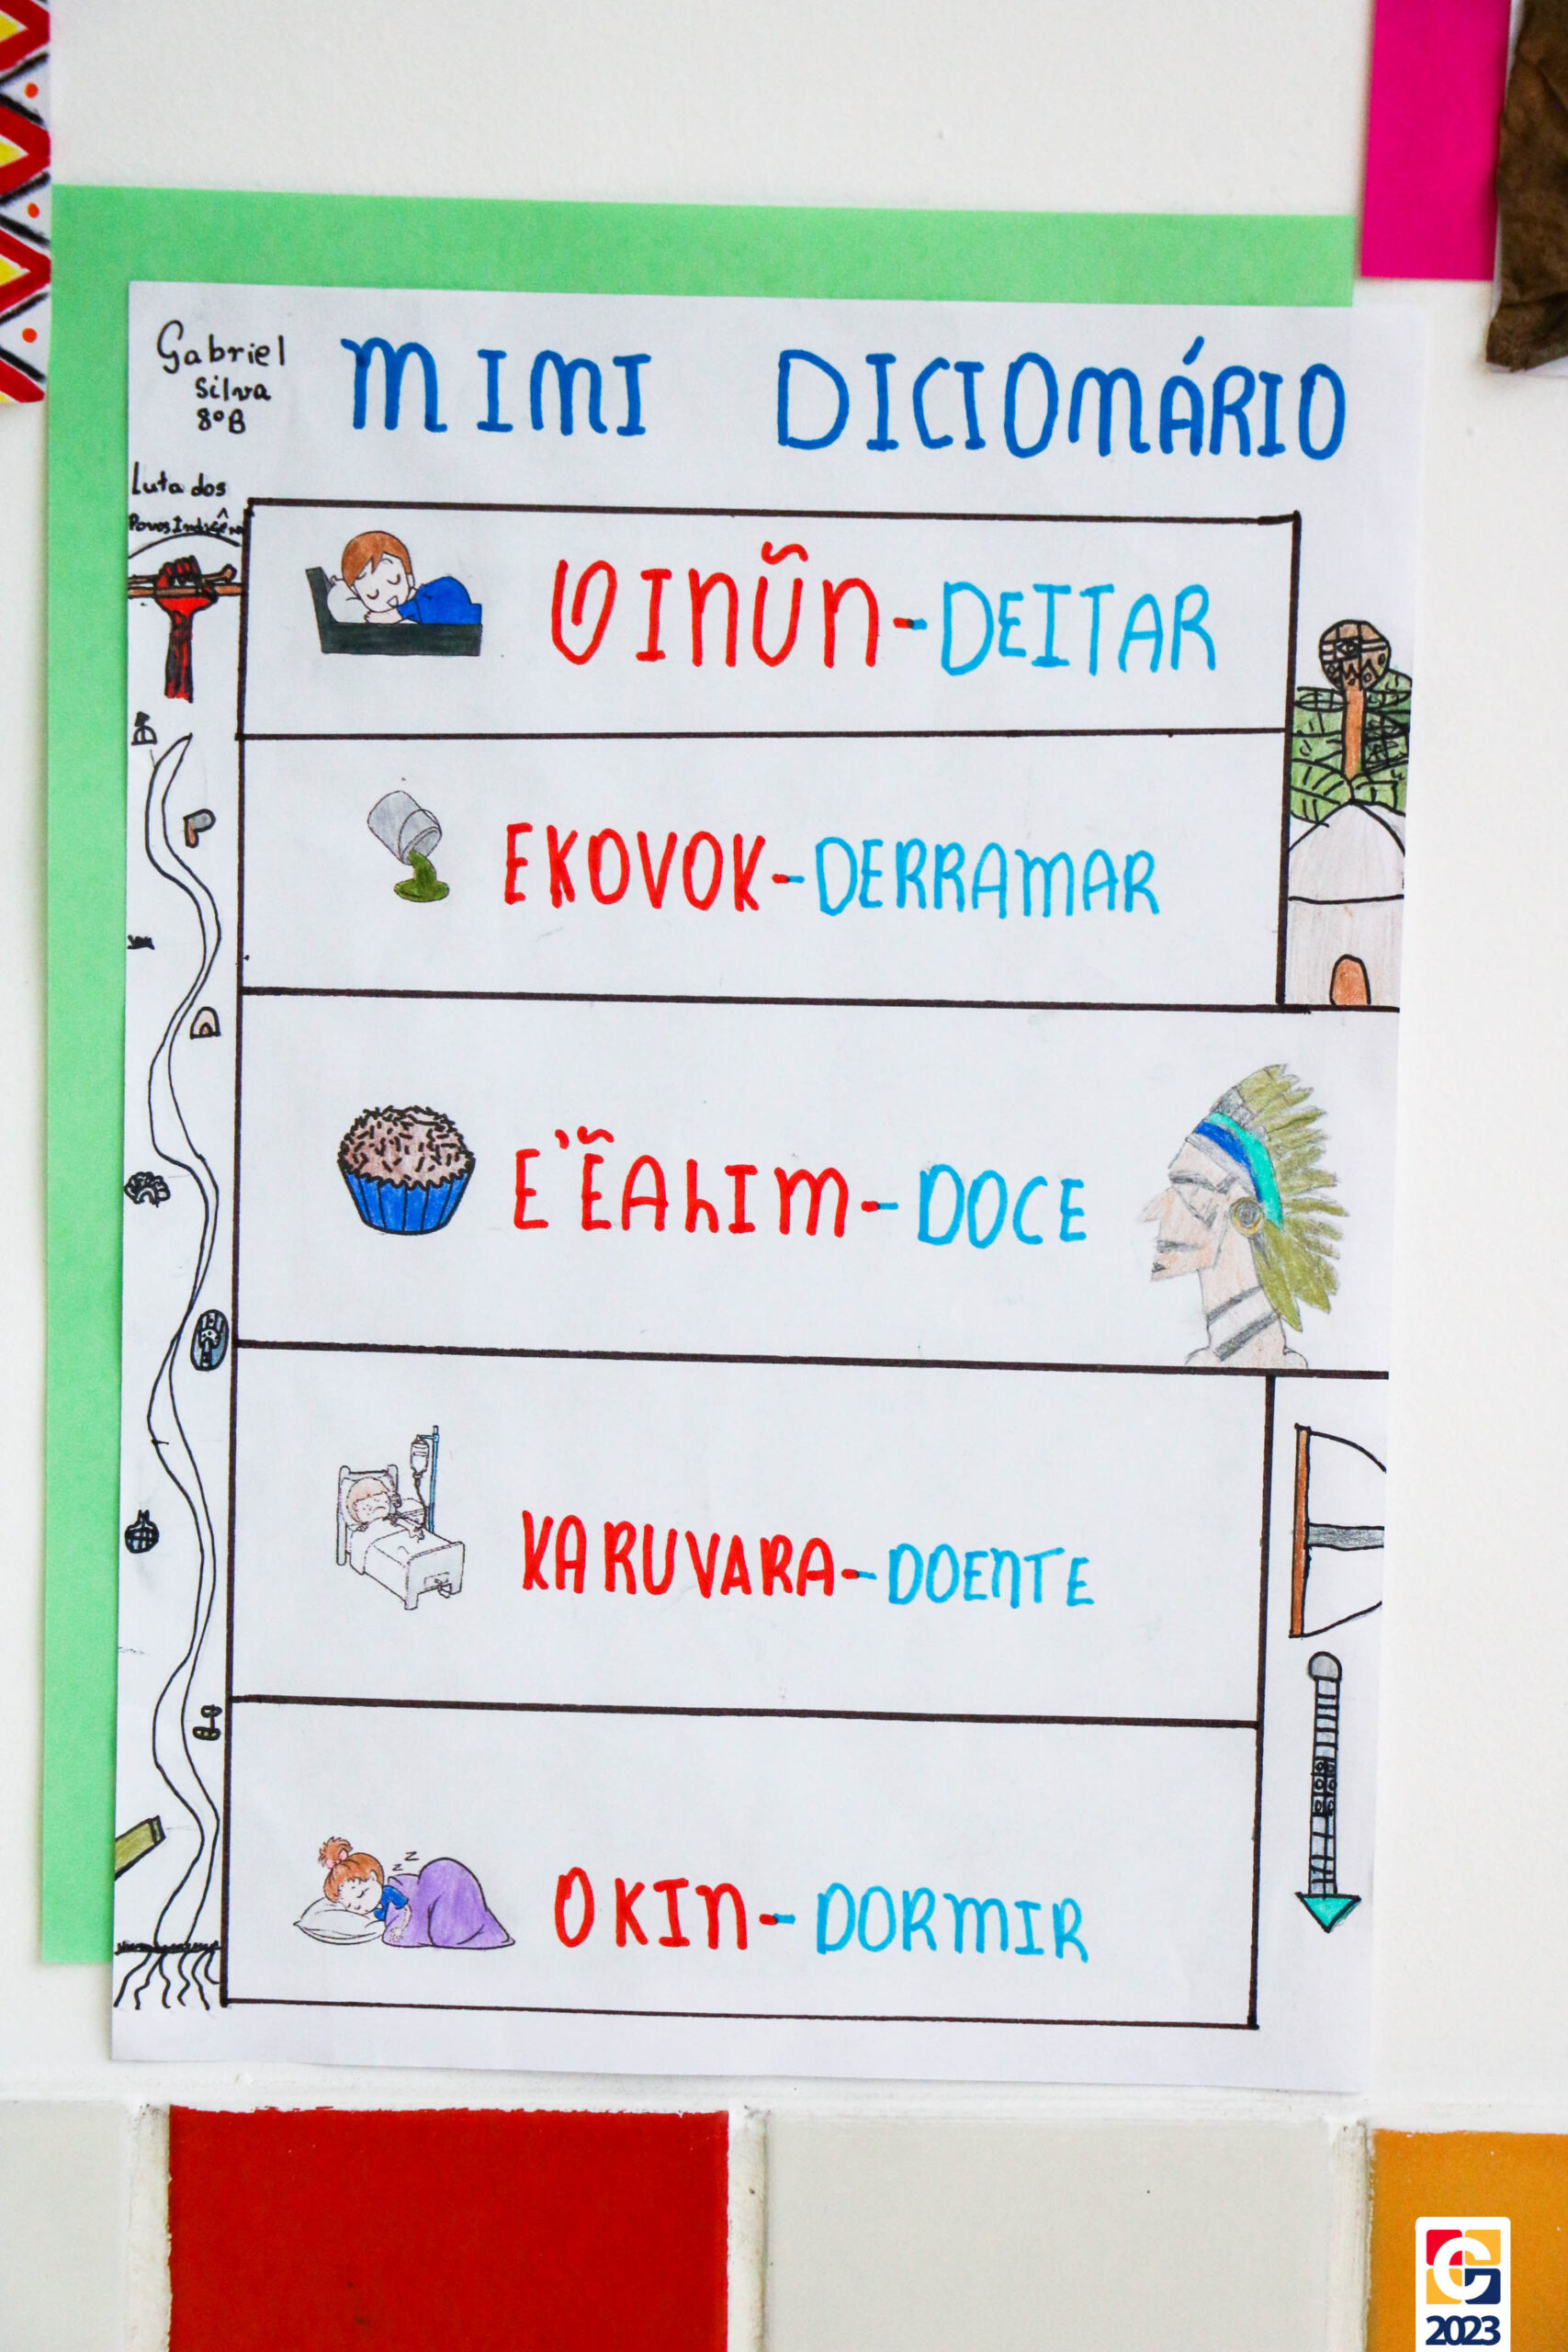 Gabriel
Silva
8º B
MIMI DICIOMÁRIO
Luta dos
Povos
INŨN-DEITAR
EKOVOK-DERRAMAR
E'ẼAhIM-DOCE
KARUVARA-DOENTE
OKIN-DORMIR
z z
G
2023